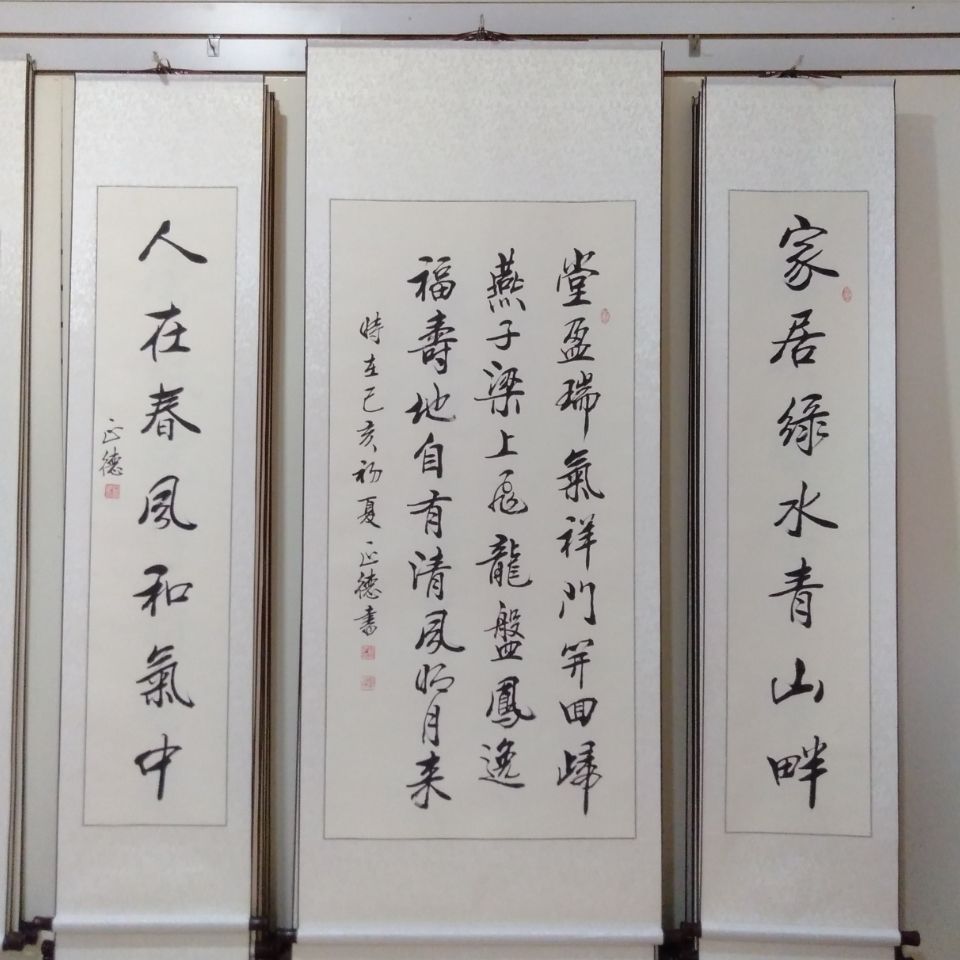 家居綠水青山畔
堂盈瑞氣祥門開回歸
燕子梁上飛龍盤鳳逸
福壽地自有清風明月来
時在己亥初夏正德書
人在春風和氣中
正德